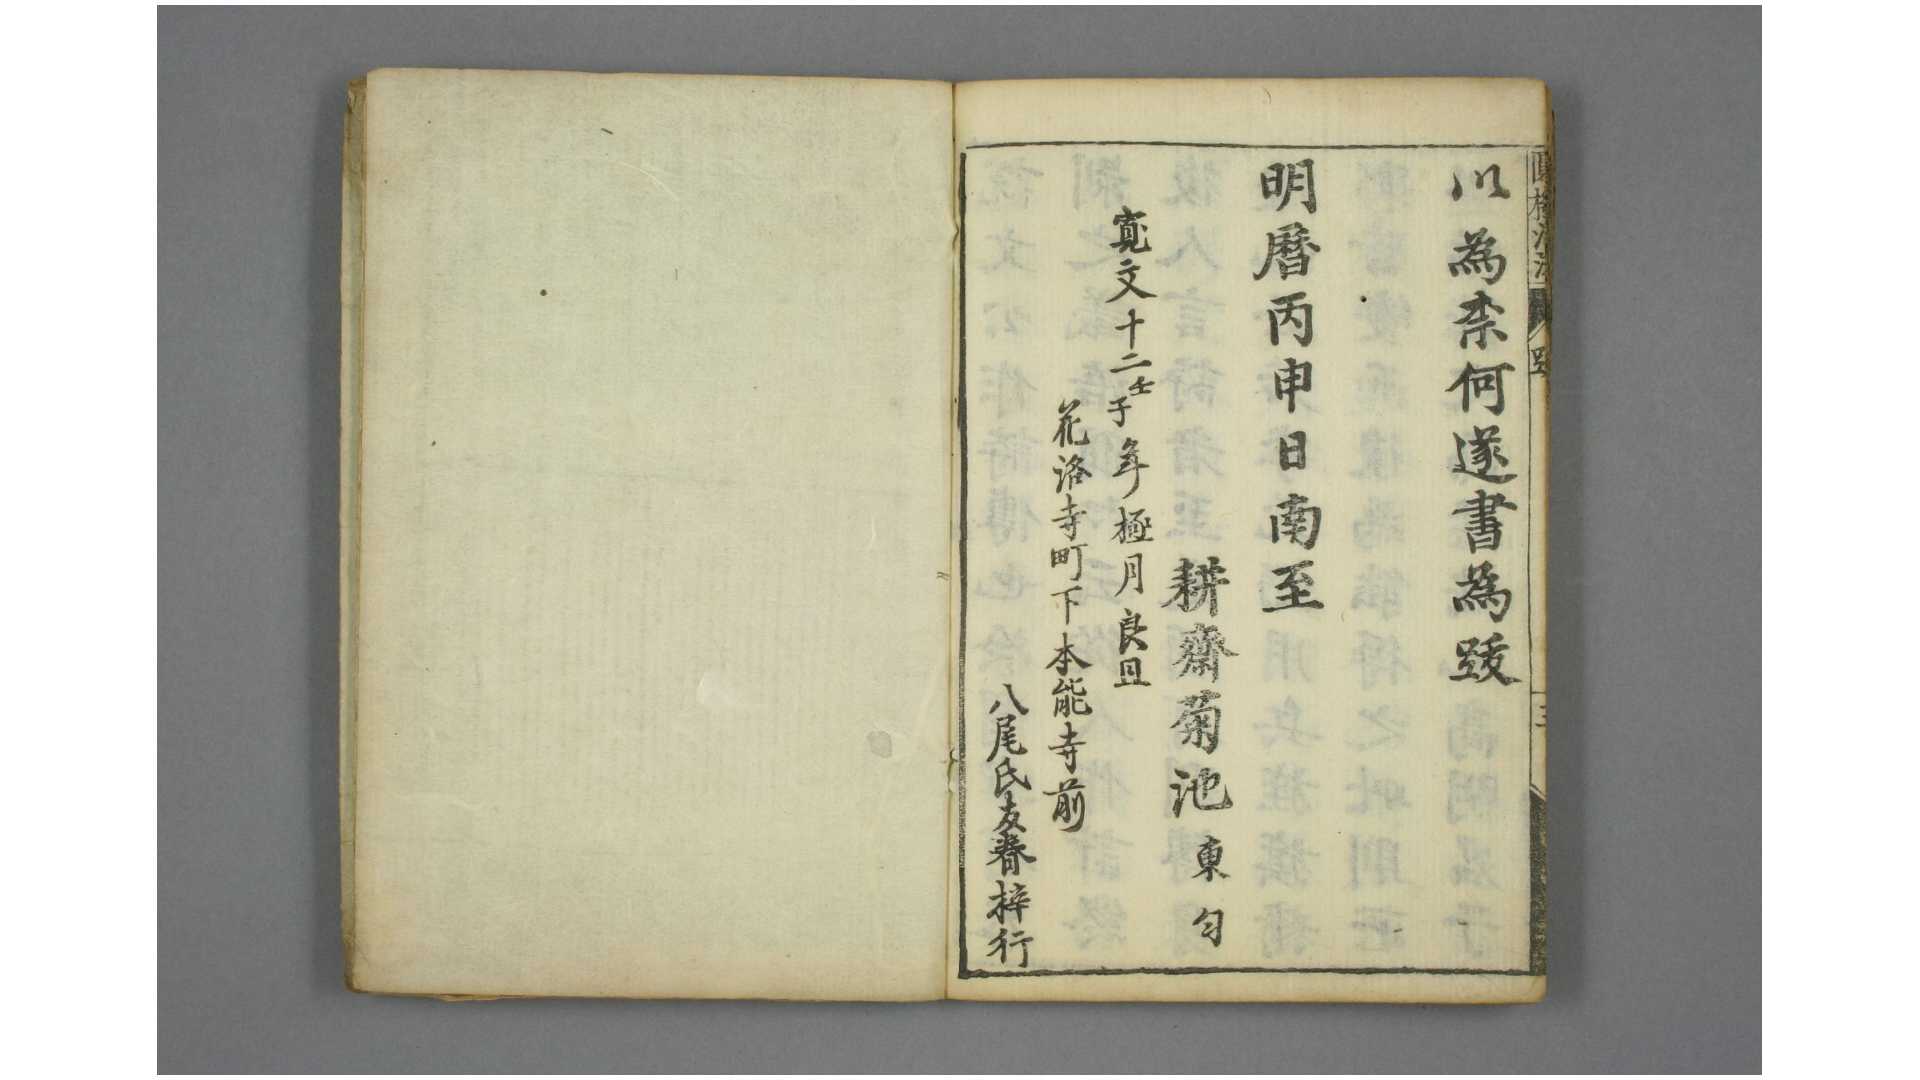 以為柰何遂書為跋
明曆丙申日南至
耕齋菊池東匀
寬文十二壬子年極月良旦
花洛寺町下本能寺前
八尾氏友春梓行
跋